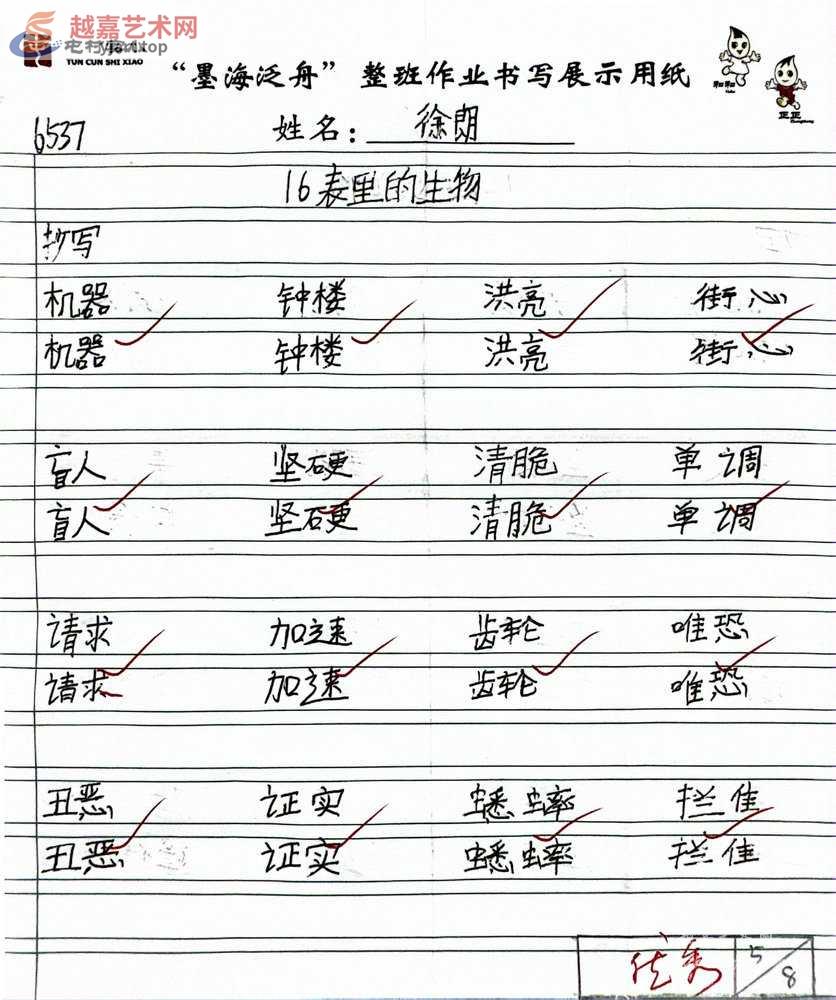 越嘉艺术网
yjart.top
TUN CUN SHI XIAO
“墨海泛舟”整班作业书写展示用纸
和和
正正
6537 姓名：徐朗
16表里的生物
抄写
机器 钟楼 洪亮 街心
机器 钟楼 洪亮 街心
盲人 坚硬 清脆 单调
盲人 坚硬 清脆 单调
请求 加速 齿轮 唯恐
请求 加速 齿轮 唯恐
丑恶 证实 蟋蟀 拦住
丑恶 证实 蟋蟀 拦住
优秀 5/8